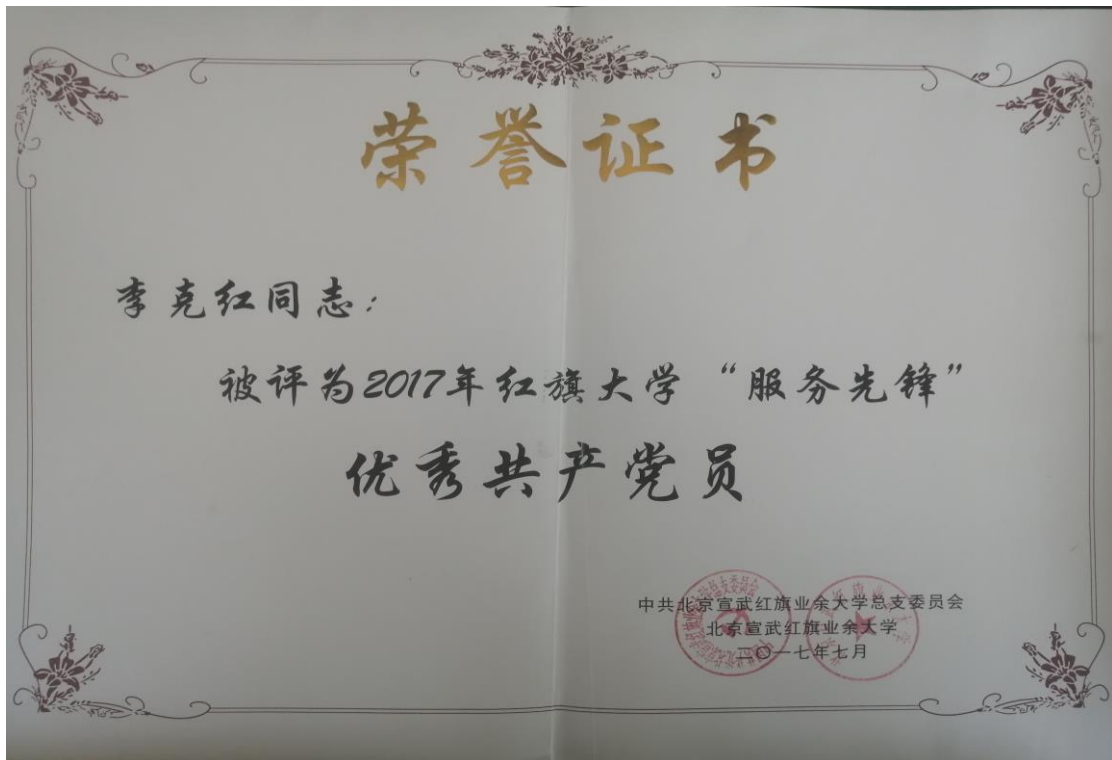 荣誉证书
李克红同志:
被评为2017年红旗大学“服务先锋”
优秀共产党员
中共北京宣武红旗业余大学总支委员会
北京宣武红旗业余大学
二〇一七年七月